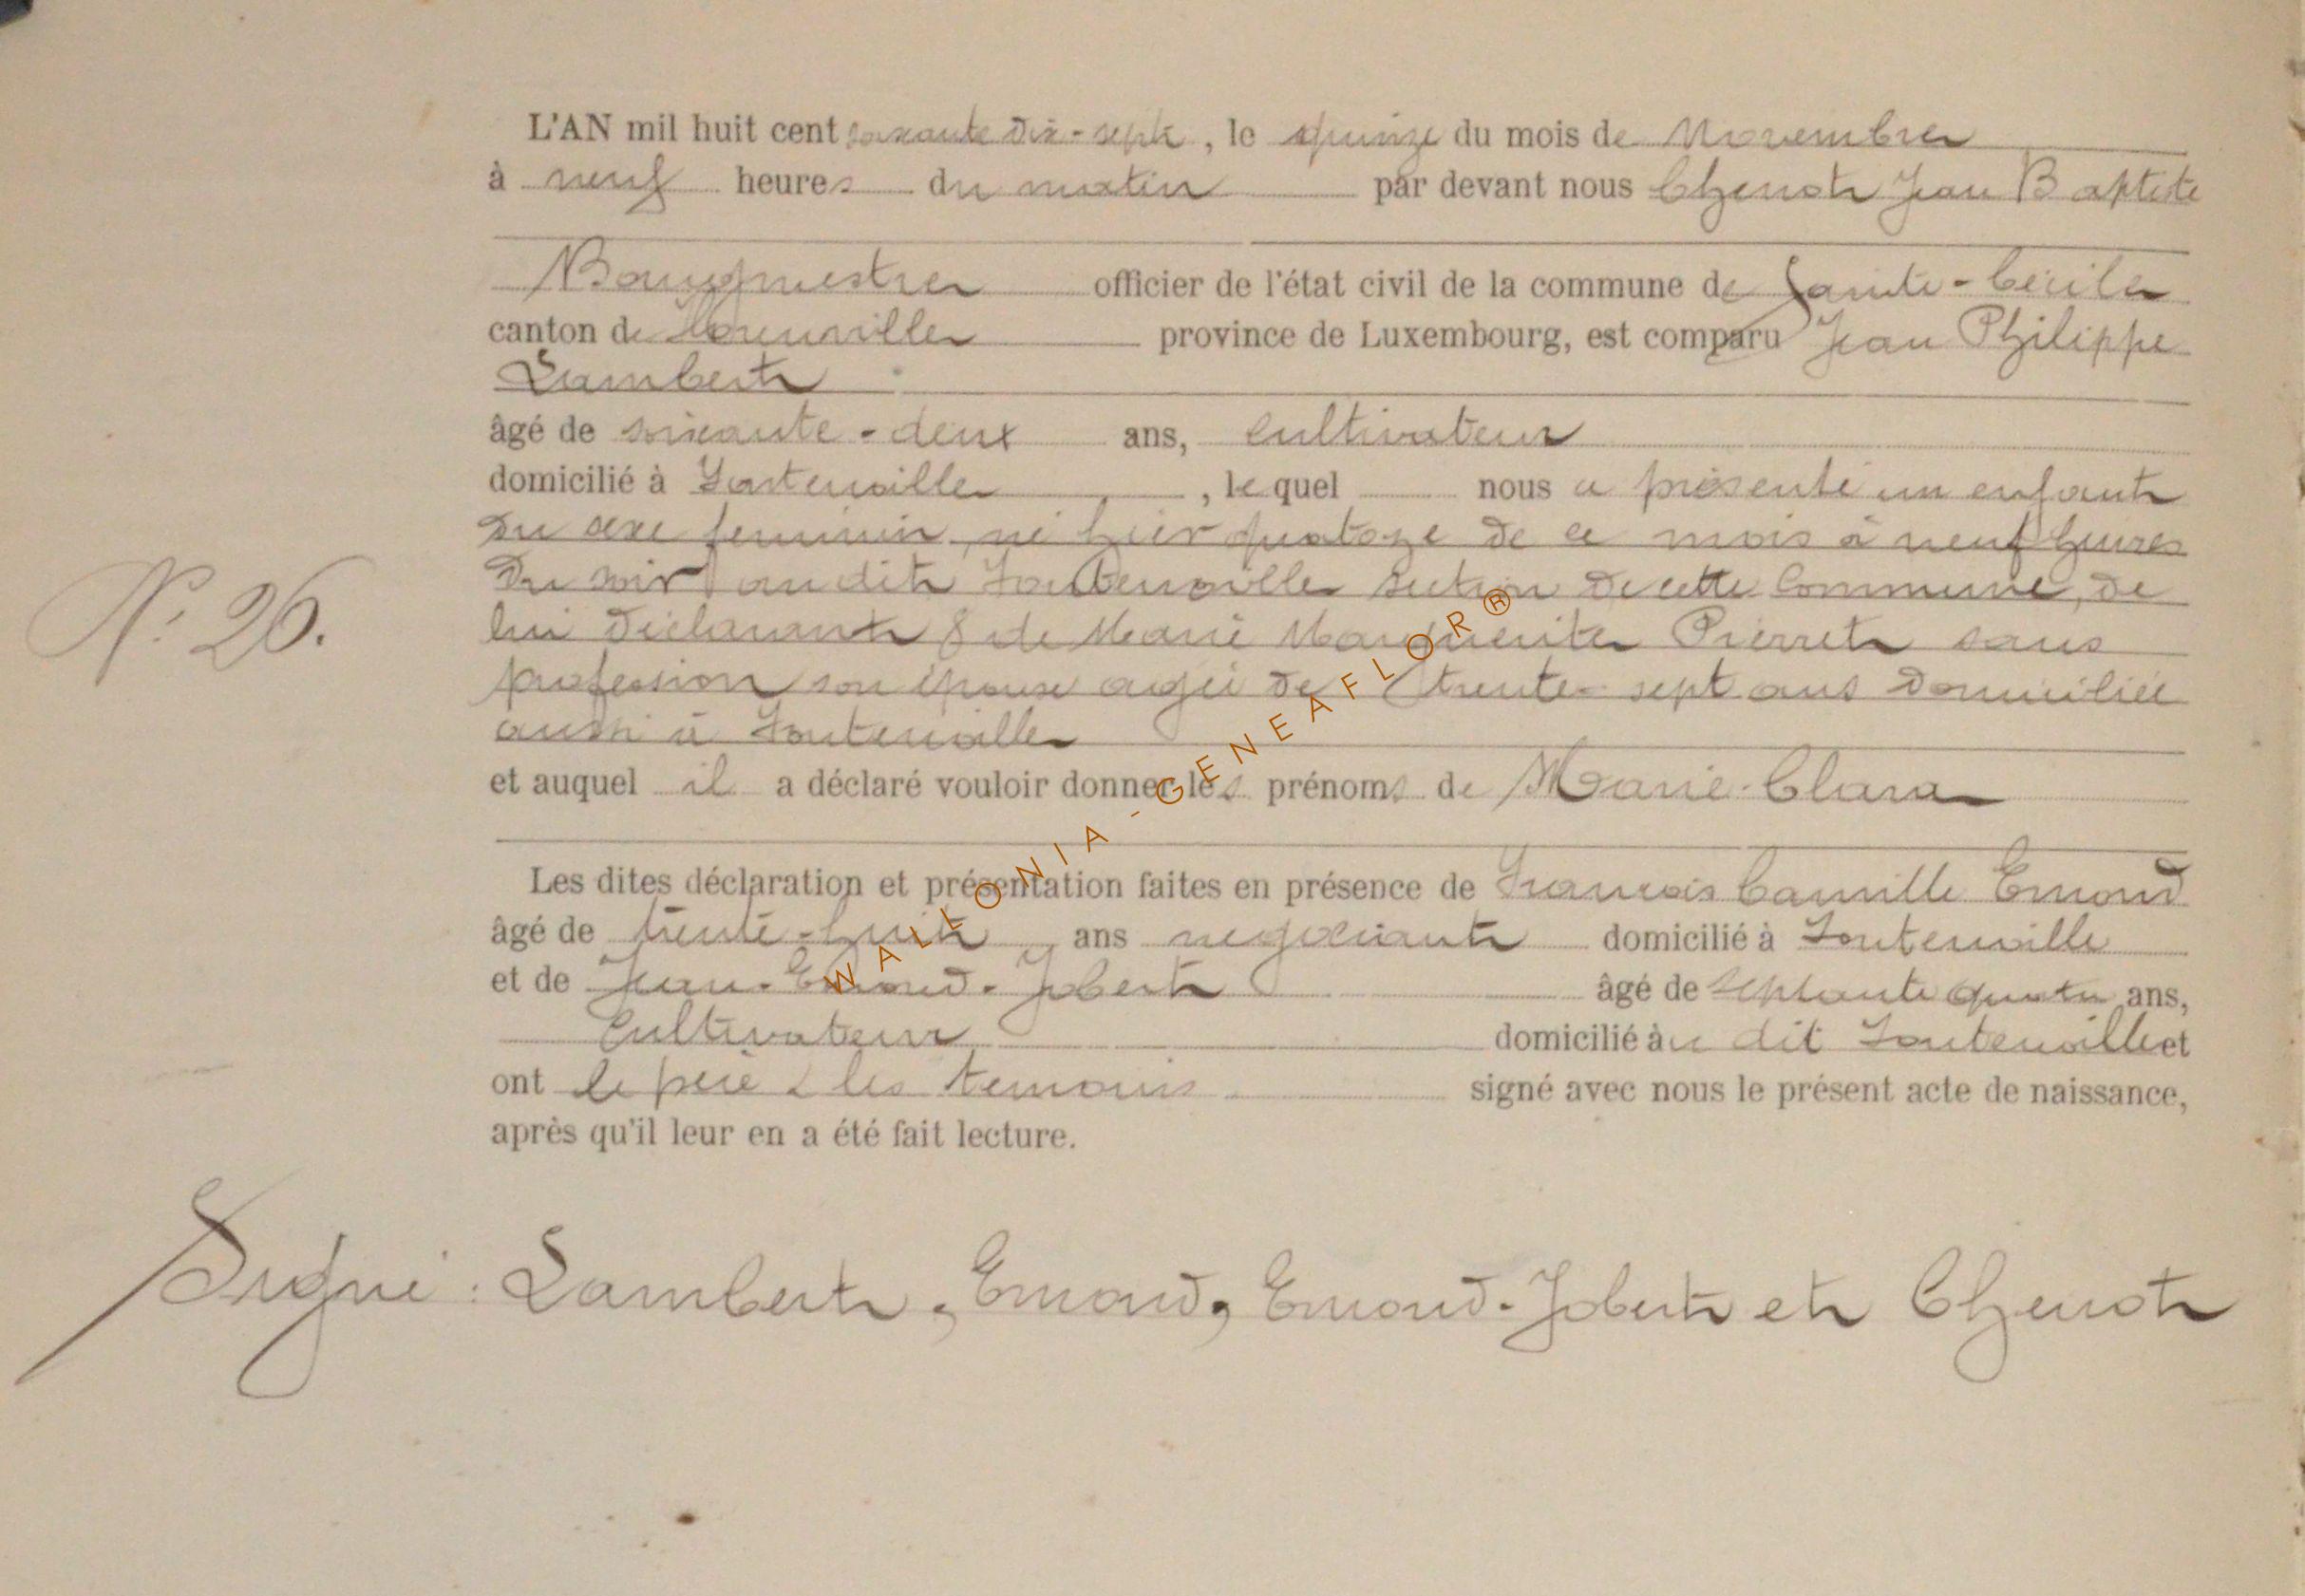 L'AN mil huit cent soixante dix-sept, le quinze du mois de Novembre
à neuf heures du matin par devant nous Chenot Jean Baptiste
Bourgmestre officier de l'état civil de la commune de Sainte-Cécile
canton de Florenville province de Luxembourg, est comparu Jean Philippe
Lambert
âgé de soixante-deux ans, cultivateur
domicilié à Fontenoille, lequel nous a présenté un enfant
N° 26.
du sexe feminin, né hier quatoze de ce mois à neuf heures
du soir au dit Fontenoille section de cette Commune, de
lui déclarant & de Marie Marguerite Pierret sans
profession son épouse agée de trente-sept ans domiciliée
aussi à Fontenoille
et auquel il a déclaré vouloir donner les prénoms de Marie-Clara
Les dites déclaration et présentation faites en présence de Francois Camille Emond
âgé de trente-huit ans negociant domicilié à Fontenoille
et de Jean-Emond-Jobert âgé de septante quatre ans,
Cultivateur domicilié au dit Fontenoille et
ont le père & les temoins signé avec nous le présent acte de naissance,
après qu'il leur en a été fait lecture.
Signé : Lambert, Emond, Emond-Jobert et Chenot
WALLONIA - GENEAFLOR®